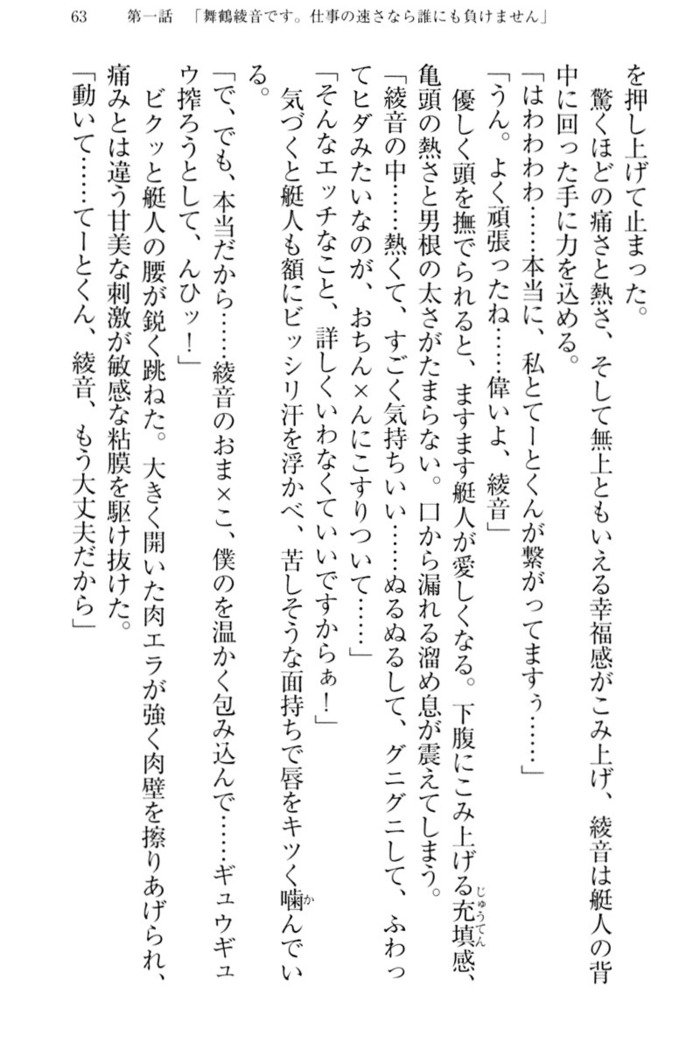 63　第一話　「舞鶴綾音です。仕事の速さなら誰にも負けません」
を押し上げて止まった。
驚くほどの痛さと熱さ、そして無上ともいえる幸福感がこみ上げ、綾音は艇人の背
中に回った手に力を込める。
「はわわわわ……本当に、私とてーとくんが繋がってますぅ……」
「うん。よく頑張ったね……偉いよ、綾音」
優しく頭を撫でられると、ますます艇人が愛しくなる。下腹にこみ上げる充填感、
じゅうてん
亀頭の熱さと男根の太さがたまらない。口から漏れる溜め息が震えてしまう。
「綾音の中……熱くて、すごく気持ちいい……ぬるぬるして、グニグニして、ふわっ
てヒダみたいなのが、おちん×んにこすりついて……」
「そんなエッチなこと、詳しくいわなくていいですからぁ！」
気づくと艇人も額にビッシリ汗を浮かべ、苦しそうな面持ちで唇をキツく噛んでい
か
る。
「で、でも、本当だから……綾音のおま×こ、僕のを温かく包み込んで……ギュウギュ
ウ搾ろうとして、んひッ！」
ビクッと艇人の腰が鋭く跳ねた。大きく開いた肉エラが強く肉壁を擦りあげられ、
痛みとは違う甘美な刺激が敏感な粘膜を駆け抜けた。
「動いて……てーとくん、綾音、もう大丈夫だから」